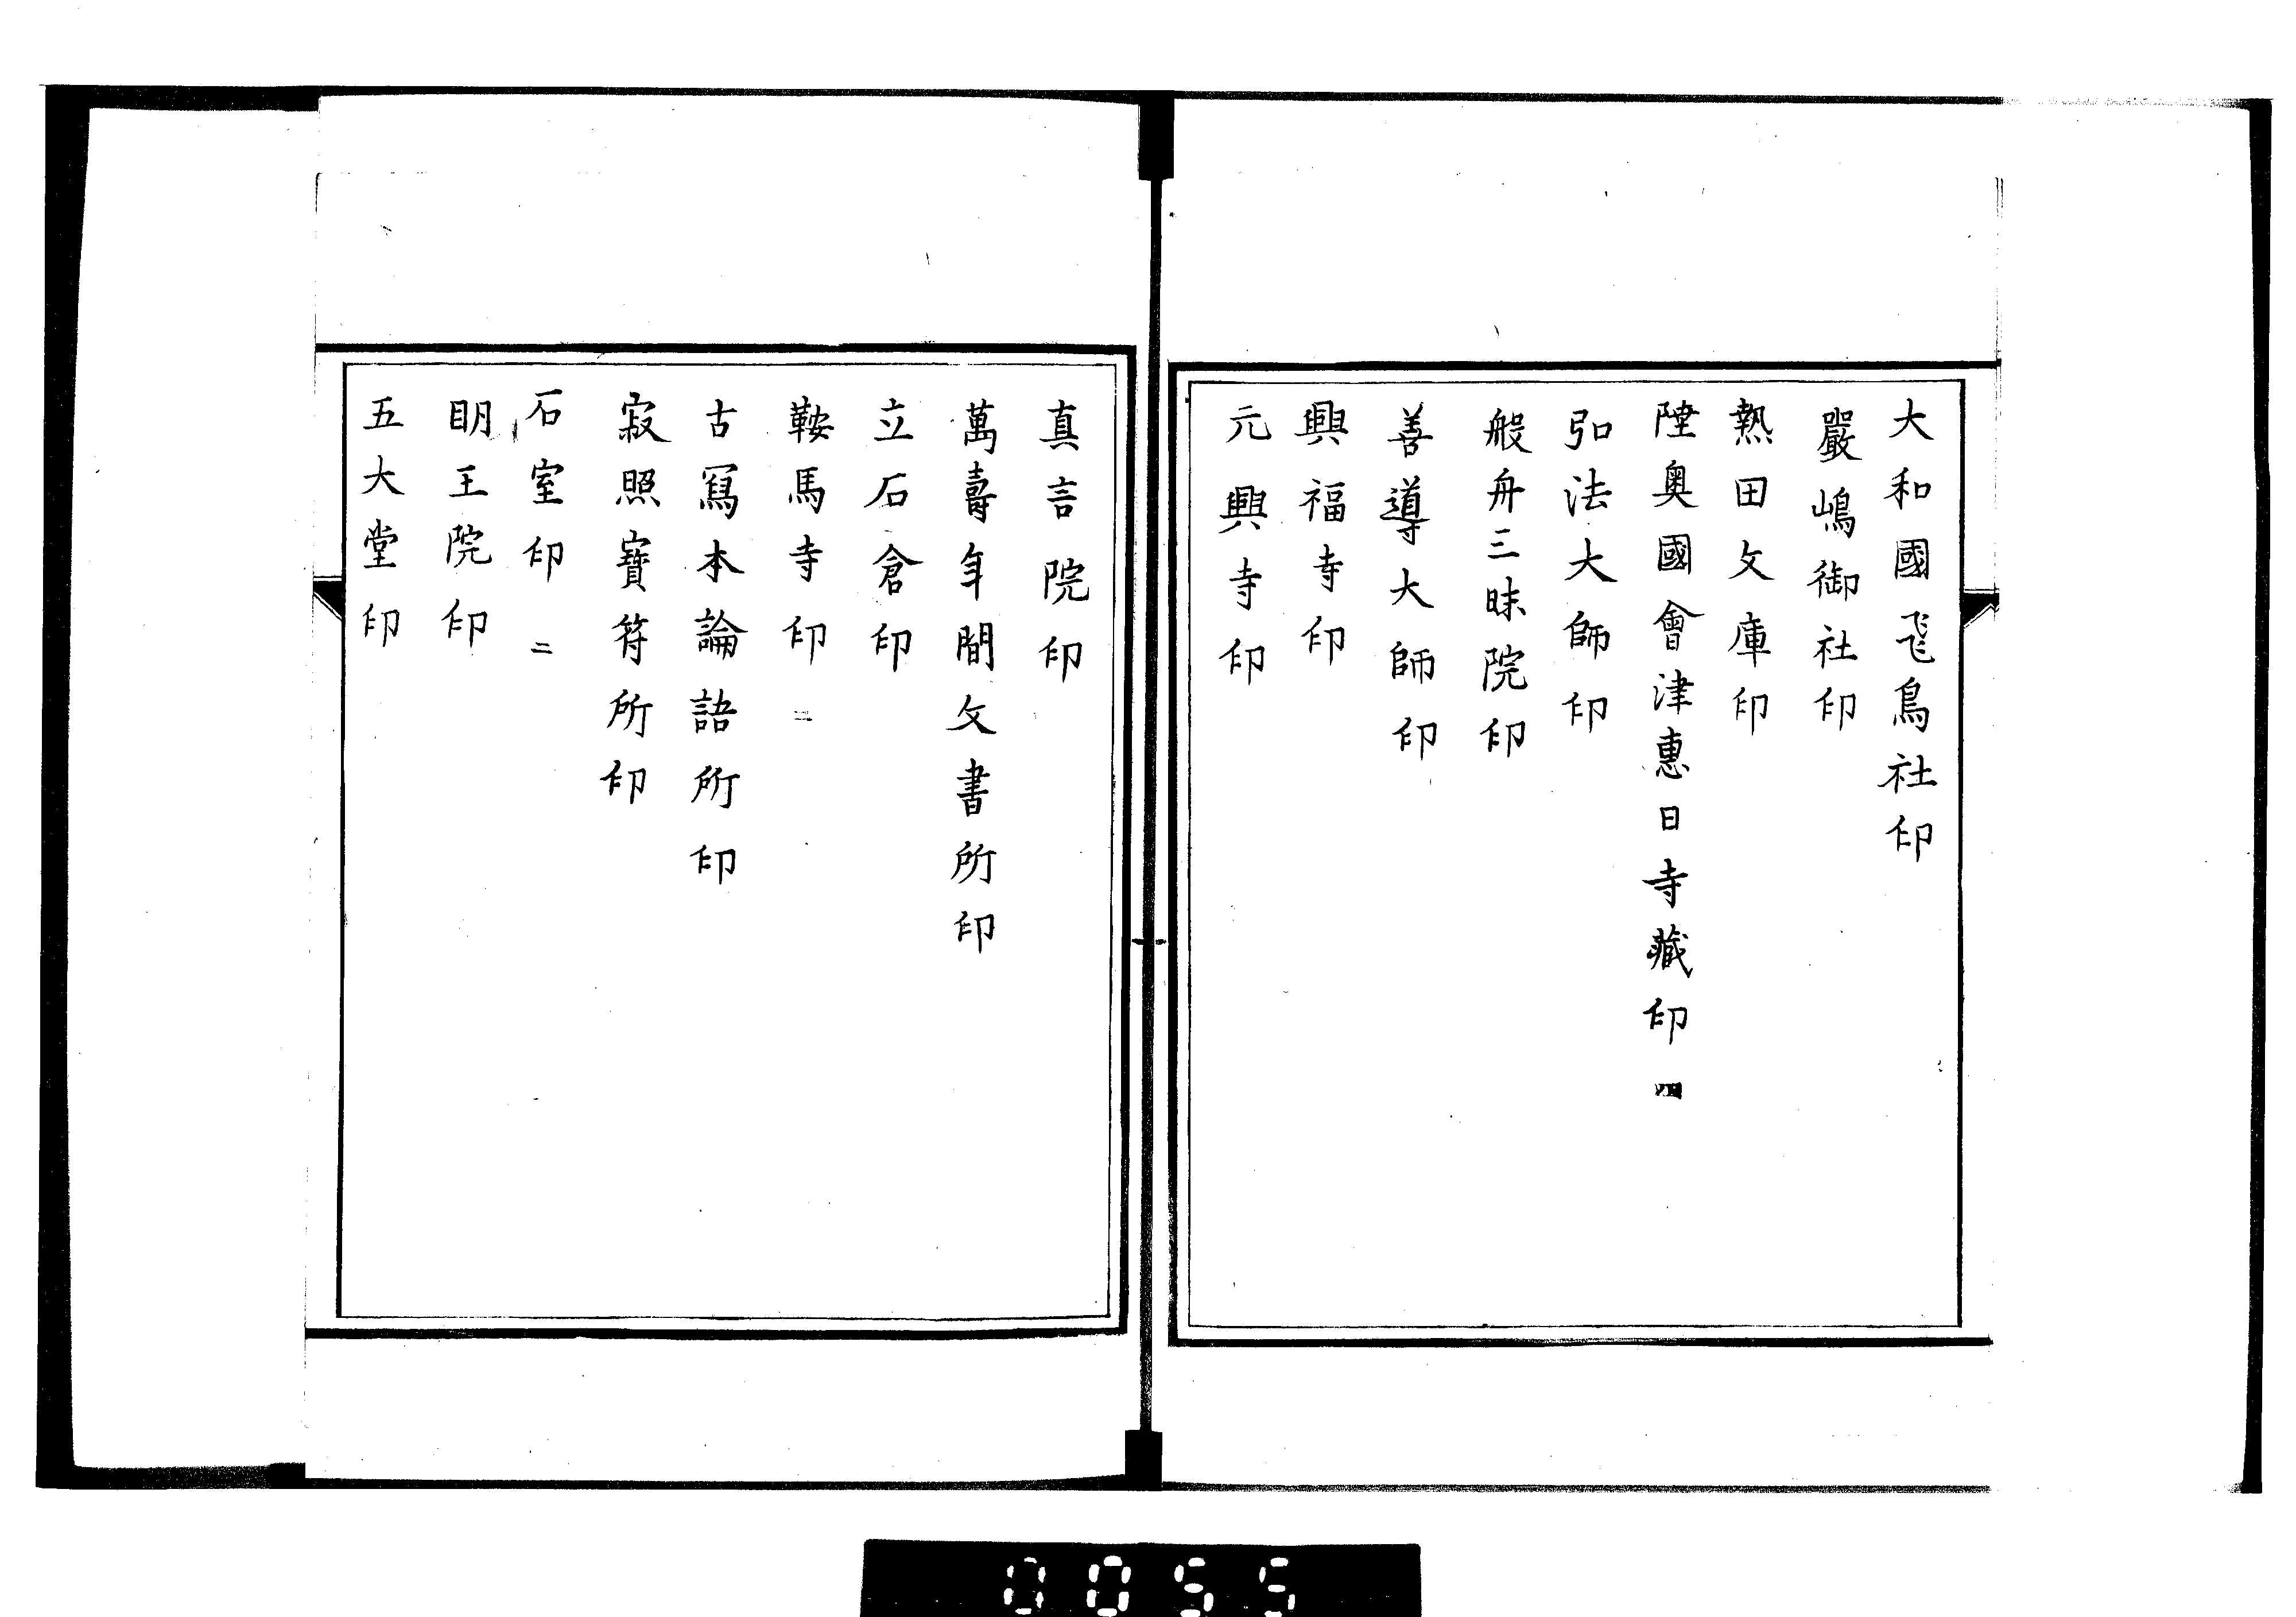 大和國飛鳥社印
嚴嶋御社印
熱田文庫印
陸奥國會津惠日寺藏印 四
弘法大師印
般舟三昧院印
善導大師印
興福寺印
元興寺印
真言院印
萬壽年間文書所印
立石倉印
鞍馬寺印 二
古寫本論語所印
寂照寶符所印
石室印 二
明王院印
五大堂印
0055